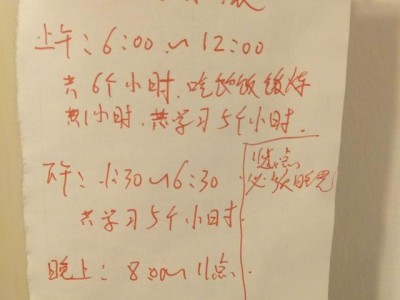 上午：6:00～12:00
共6个小时.吃饭饭锻炼
共1小时.共学习5个小时.
下午：1:30～6:30
共学习5个小时.
11点
必须睡觉
晚上：8:00～11点.